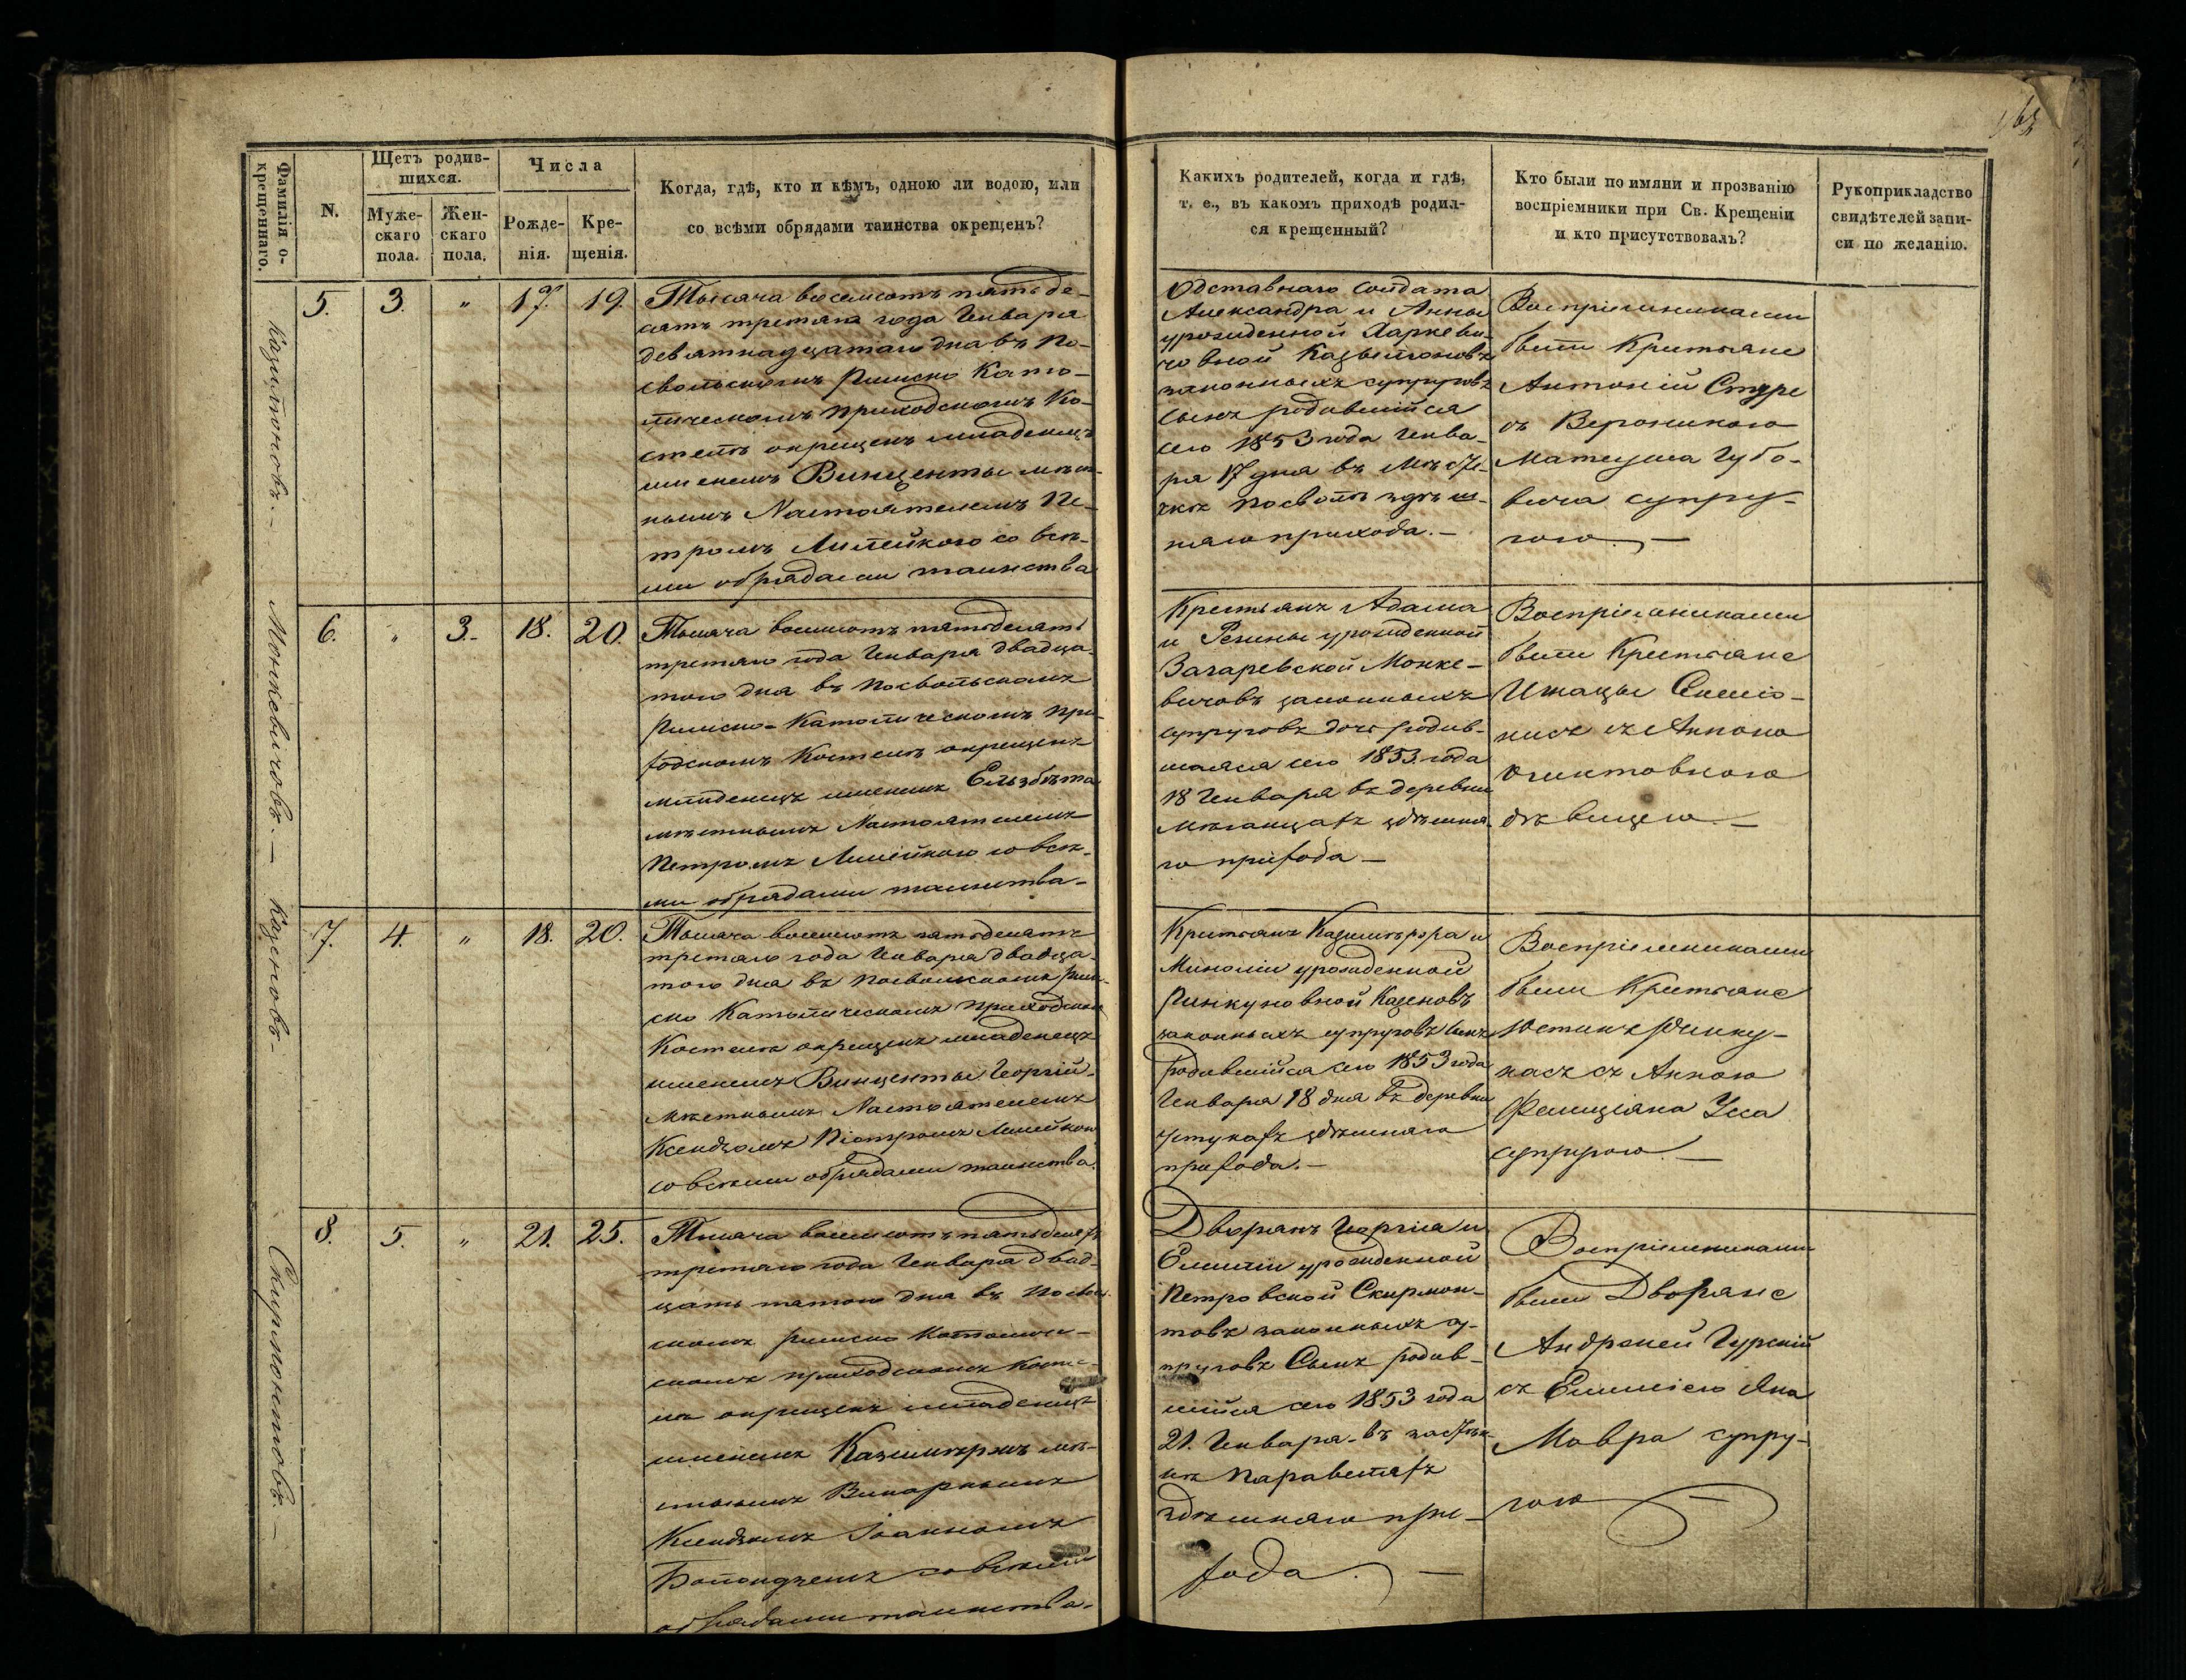 Фамилія о-
крещеннаго.
N.
Щетъ родив-
шихся.
Муже-
скаго
пола.
Жен-
скаго
пола.
Числа
Рожде-
нія.
Кре-
щенія.
Когда, гдѣ, кто и кѣмъ, одною ли водою, или
со всѣми обрядами таинства окрещенъ?
Какихъ родителей, когда и гдѣ,
т. е., въ какомъ приходѣ родил-
ся крещенный?
Кто были по имяни и прозванію
воспріемники при Св. Крещеніи
и кто присутствовалъ?
Рукоприкладство
свидѣтелей запи-
си по желанію.
5. 3. " 17. 19.
Тысяча восемсотъ пятьде-
сятъ третяго года Генваря
девятнадцатаго дня въ По-
свольскомъ Римско Като-
лическомъ приходскомъ Ко-
стелѣ окрещенъ младенецъ
именемъ Винценты мѣст-
нымъ Настоятелемъ Пе-
тромъ
со всѣ-
ми обрядами таинства
Отставнаго Солдата
Александра и Анны
урожденной
законныхъ супруговъ
сынъ родившійся
сего 1853 года Генва-
ря 17 дня въ Мѣстеч-
кѣ Посволѣ здѣш-
няго прихода. –
Воспріемниками
были Крестьяне
Антоній
съ Вероникою
Матеуша Губо-
вича супру-
гою. –
6. " 3. 18. 20.
Тысяча восемсотъ пятьдесятъ
третяго года Генваря двадца-
таго дня въ Посвольскомъ
Римско-Католическомъ При-
ходскомъ Костелѣ окрещенъ
младенецъ именемъ Ельзбѣта
мѣстнымъ Настоятелемъ
Петромъ
со всѣ-
ми обрядами таинства –
Крестьянъ Адама
и Регины урожденной
Захаревской Монке-
вичовъ законныхъ
супруговъ дочь родив-
шаяся сего 1853. года
18 Генваря въ деревни
здѣшня-
го прихода –
Воспріемниками
были Крестьяне
Игнацы
съ Анною
дѣвицею –
Монкевичовъ. –
7. 4. " 18. 20.
Тысяча восемсотъ пятьдесятъ
третяго года Генваря двадца-
таго дня въ Посвольскомъ Рим-
ско Католическомъ приходскомъ
Костелѣ окрещенъ младенецъ
именемъ Винценты Георгій –
мѣстнымъ Настоятелемъ
Ксендзомъ Піотромъ
со всѣми обрядами таинства.
Крестьянъ
урожденной
Казеновъ
законныхъ супруговъ сынъ
родившійся сего 1853 года
Генваря 18 дня въ деревни
здѣшняго
прихода. –
Воспріемниками
были Крестьяне
съ Анною
Фелиціана
супругою –
Казеновъ –
8. 5. " 21. 25.
Тысяча восемсотъ пятьдесятъ
третяго года Генваря двад-
цать пятаго дня въ Посволь-
скомъ Римско Католиче-
скомъ приходскомъ Косте-
лѣ окрещенъ младенецъ
именемъ Казимѣржъ мѣ-
стнымъ Викарнымъ
Ксендзомъ Іоанномъ
со всѣми
обрядами таинства.
Дворянъ Георгія и
Емиліи урожденной
Петровской Скирмон-
товъ законныхъ су-
пруговъ Сынъ родив-
шійся сего 1853 года
21. Генваря – въ застѣн-
кѣ
здѣшняго при-
хода. –
Воспріемниками
были Дворяне
Андржей Гурскій
съ Емиліею Яна
Мавра супру-
гою –
Скирмонтовъ. –